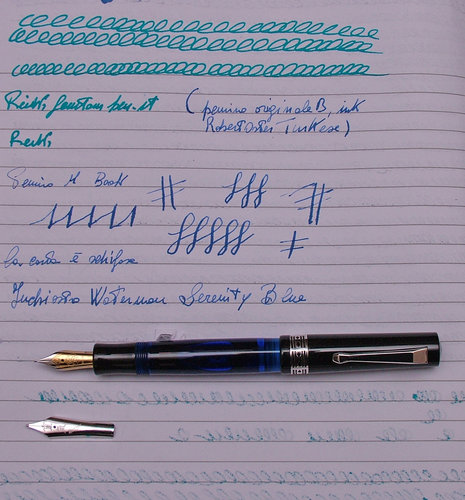 Reith, fountain pen.it (pennino originale B, ink
Robert Oster Turkese)
Reith,
Pennino M Bock
la carta è schifosa
Inchiostro Waterman Serenity Blue